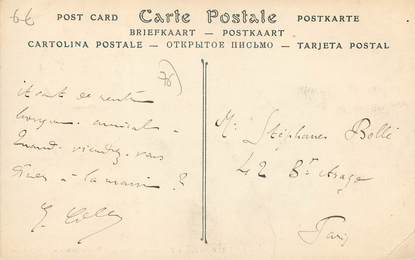 6€
POST CARD Carte Postale POSTKARTE
BRIEFKAART — POSTKAART
CARTOLINA POSTALE — ОТКРЫТОЕ ПИСЬМО — TARJETA POSTAL
76
Avant de
amical
Quand viendrez vous
à la maison ?
Mr Stéphane Bolle
42 Bd Arago
Paris